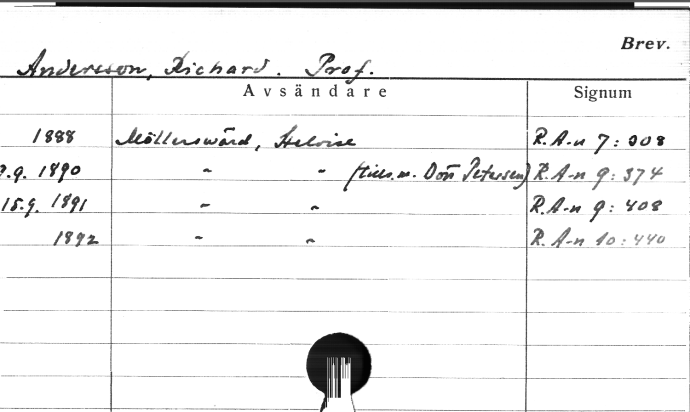 Brev.
Andersson, Richard. Prof.
Avsändare Signum
1888 Möllerswärd, Heloise R.A-n 7:308
.9. 1890 " " (tills.m. Don Petersen) R.A-n 9:374
15.9. 1891 " " R.A-n 9:408
1892 " " R.A-n 10:440